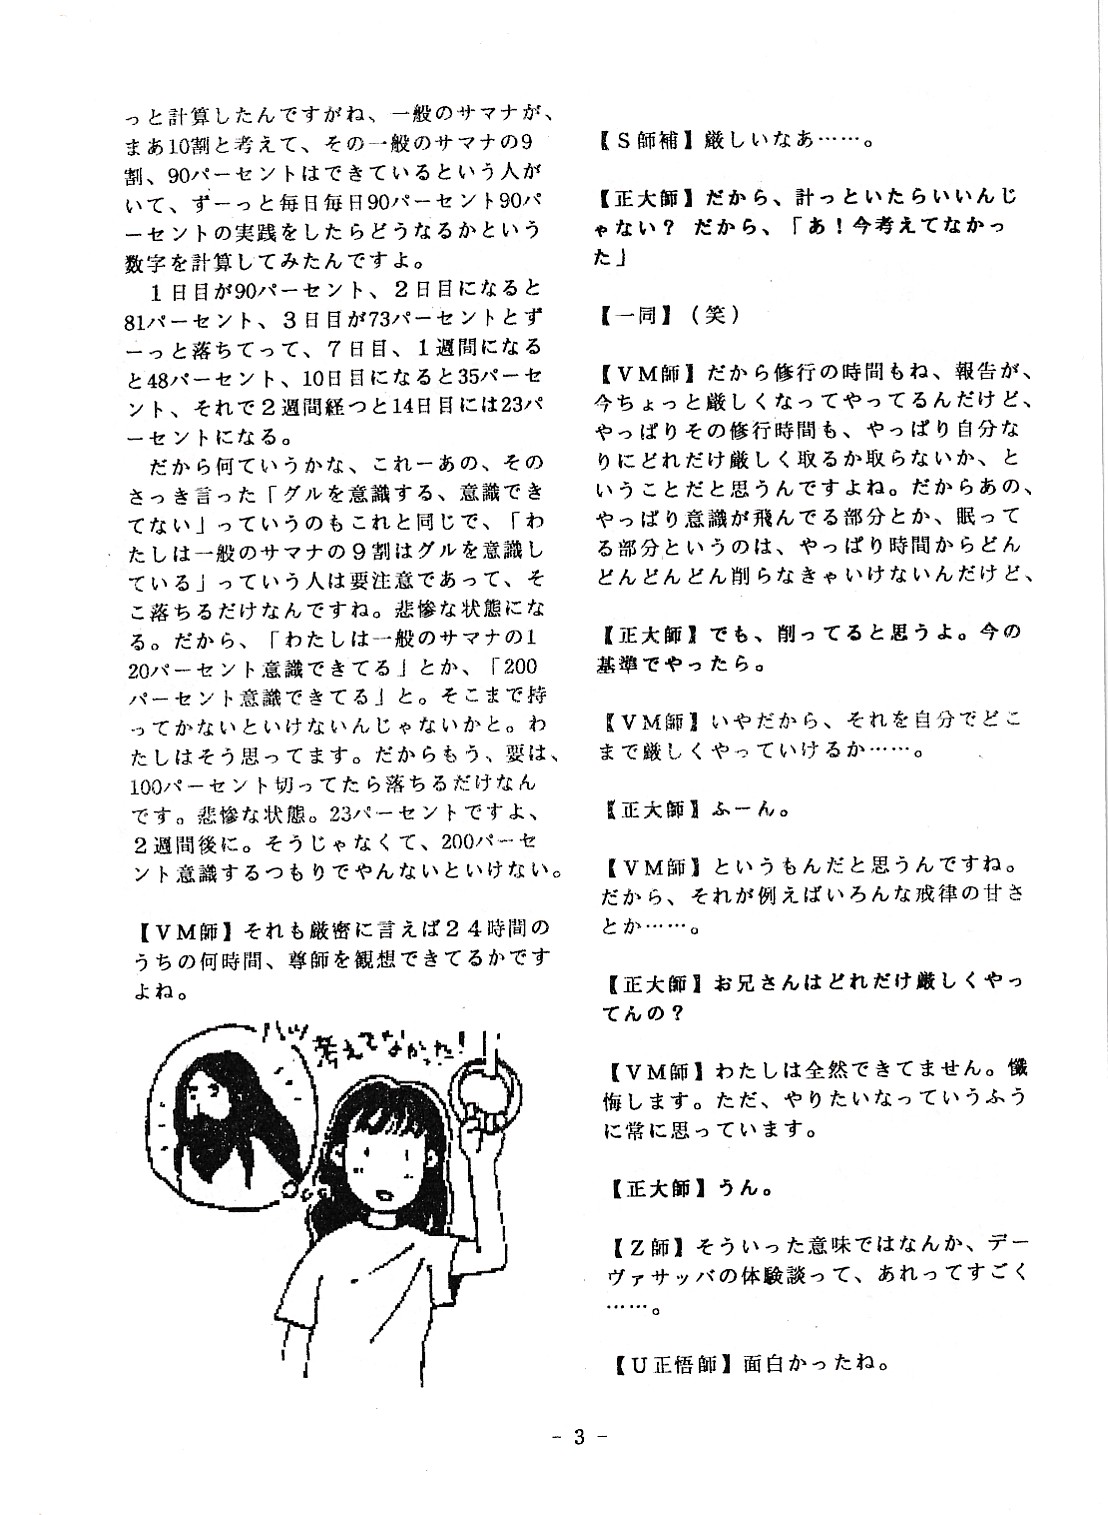 っと計算したんですがね、一般のサマナが、
まあ10割と考えて、その一般のサマナの9
割、90パーセントはできているという人が
いて、ずーっと毎日毎日90パーセント90パ
ーセントの実践をしたらどうなるかという
数字を計算してみたんですよ。
　１日目が90パーセント、２日目になると
81パーセント、３日目が73パーセントとず
ーっと落ちてって、７日目、１週間になる
と48パーセント、10日目になると35パーセ
ント、それで２週間経つと14日目には23パ
ーセントになる。
　だから何ていうかな、これーあの、その
さっき言った「グルを意識する、意識でき
てない」っていうのもこれと同じで、「わ
たしは一般のサマナの９割はグルを意識し
ている」っていう人は要注意であって、そ
こ落ちるだけなんですね。悲惨な状態にな
る。だから、「わたしは一般のサマナの1
20パーセント意識できてる」とか、「200
パーセント意識できてる」と。そこまで持
ってかないといけないんじゃないかと。わ
たしはそう思ってます。だからもう、要は、
100パーセント切ってたら落ちるだけなん
です。悲惨な状態。23パーセントですよ、
２週間後に。そうじゃなくて、200パーセ
ント意識するつもりでやんないといけない。
【ＶＭ師】それも厳密に言えば２４時間の
うちの何時間、尊師を観想できてるかです
よね。
ハッ
考えてなかった！
【Ｓ師補】厳しいなあ……。
【正大師】だから、計っといたらいいんじ
ゃない？ だから、「あ！今考えてなかっ
た」
【一同】（笑）
【ＶＭ師】だから修行の時間もね、報告が、
今ちょっと厳しくなってやってるんだけど、
やっぱりその修行時間も、やっぱり自分な
りにどれだけ厳しく取るか取らないか、と
いうことだと思うんですよね。だからあの、
やっぱり意識が飛んでる部分とか、眠って
る部分というのは、やっぱり時間からどん
どんどんどん削らなきゃいけないんだけど、
【正大師】でも、削ってると思うよ。今の
基準でやったら。
【ＶＭ師】いやだから、それを自分でどこ
まで厳しくやっていけるか……。
【正大師】ふーん。
【ＶＭ師】というもんだと思うんですね。
だから、それが例えばいろんな戒律の甘さ
とか……。
【正大師】お兄さんはどれだけ厳しくやっ
てんの？
【ＶＭ師】わたしは全然できてません。懺
悔します。ただ、やりたいなっていうふう
に常に思っています。
【正大師】うん。
【Ｚ師】そういった意味ではなんか、デー
ヴァサッバの体験談って、あれってすごく
……。
【Ｕ正悟師】面白かったね。
- 3 -